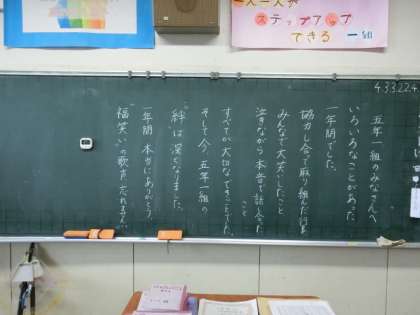 一人一人が
ステップアップ
できる 一組
五年一組のみなさんへ
いろいろなことがあった
一年間でした。
協力し合って取り組んだ行事
みんなで大笑いしたこと
泣きながら本音で話し合った
こと
すべてが大切なできごとでした。
そして今、五年一組の
絆は深くなりました。
一年間本当にありがとう。
"福笑い"の歌声忘れません。